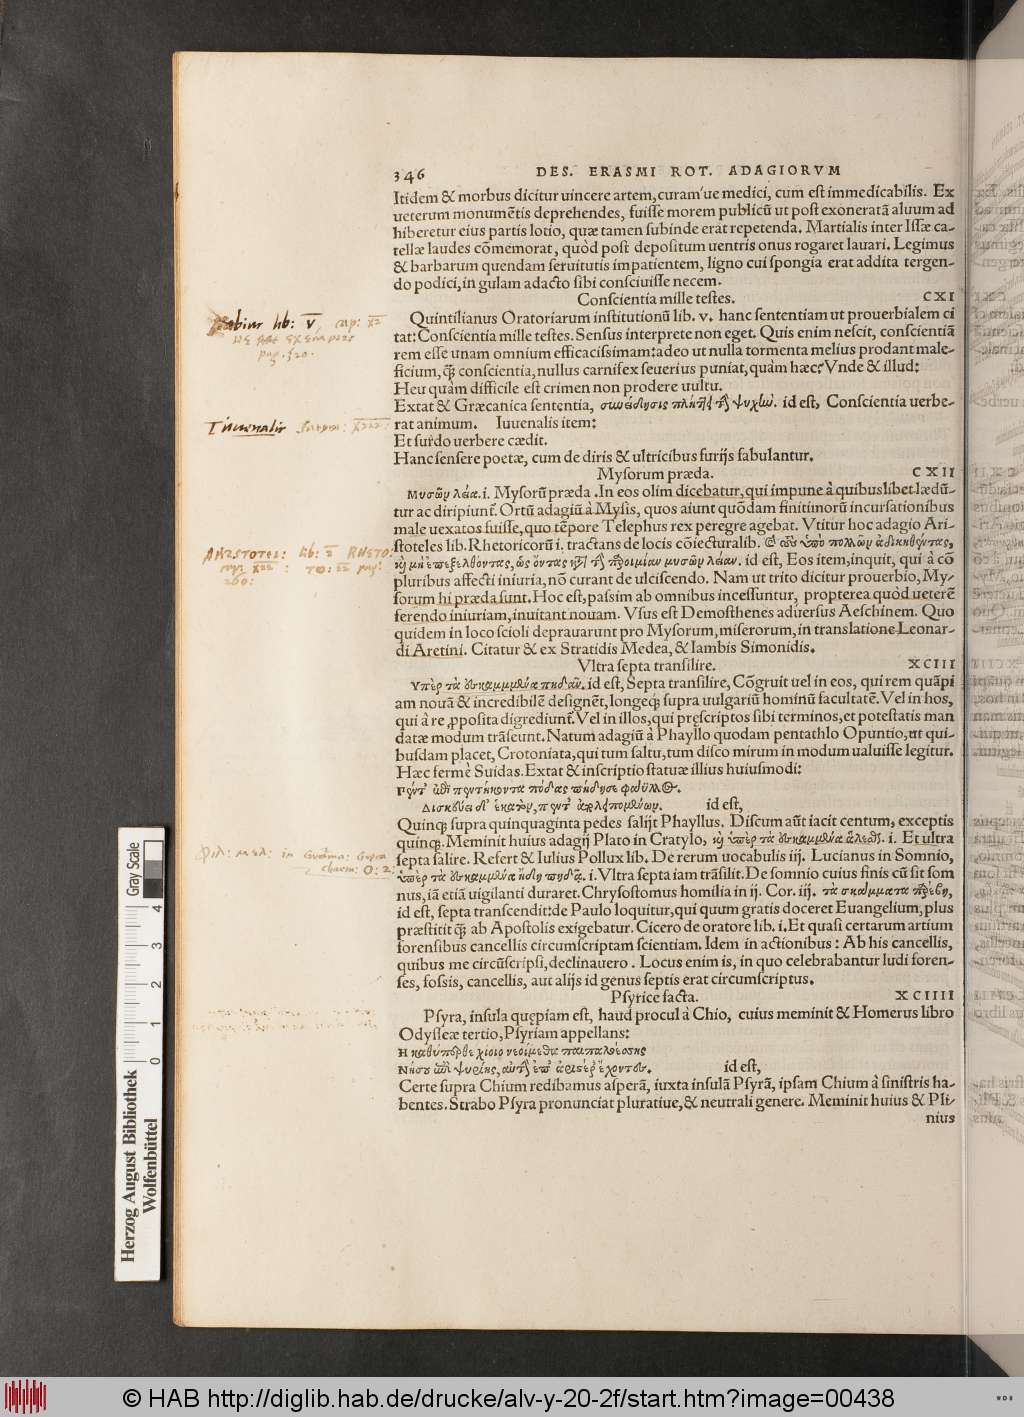 346 DES. ERASMI ROT. ADAGIORVM
Itidem & morbus dicitur uincere artem, curam'ue medici, cum est immedicabilis. Ex
ueterum monumẽtis deprehendes, fuisse morem publicũ ut post exoneratã aluum ad
hiberetur eius partis lotio, quæ tamen subinde erat repetenda. Martialis inter Issæ ca-
tellæ laudes cõmemorat, quòd post depositum uentris onus rogaret lauari. Legimus
& barbarum quendam seruitutis impatientem, ligno cui spongia erat addita tergen-
do podici, in gulam adacto sibi consciuisse necem.
Conscientia mille testes. CXI
Quintilianus Oratoriarum institutionũ lib. v. hanc sententiam ut prouerbialem ci
tat: Conscientia mille testes. Sensus interprete non eget. Quis enim nescit, conscientiã
rem esse unam omnium efficacissimam: adeo ut nulla tormenta melius prodant male-
ficium, q̃ conscientia, nullus carnifex seuerius puniat, quàm hæc? Vnde & illud:
Heu quàm difficile est crimen non prodere uultu.
Extat & Græcanica sententia, συνείδησις πλήττει τὴν ψυχήν. id est, Conscientia uerbe-
rat animum. Iuuenalis item:
Et surdo uerbere cædit.
Hanc sensere poetæ, cum de diris & ultricibus furijs fabulantur.
Mysorum præda. CXII
Μυσῶν λεία. i. Mysorũ præda. In eos olim dicebatur, qui impune à quibuslibet lædũ-
tur ac diripiunt̃. Ortũ adagiũ à Mysis, quos aiunt quõdam finitimorũ incursationibus
male uexatos fuisse, quo tẽpore Telephus rex peregre agebat. Vtitur hoc adagio Ari-
stoteles lib. Rhetoricorũ i. tractans de locis cõiecturalib. ὑπὸ πολλῶν ἀδικηθέντας,
καὶ μὴ ἐπεξελθόντας, ὡς ὄντας κατὰ τὴν παροιμίαν μυσῶν λείαν. id est, Eos item, inquit, qui à cõ
pluribus affecti iniuria, nõ curant de ulciscendo. Nam ut trito dicitur prouerbio, My-
sorum hi præda sunt. Hoc est, passim ab omnibus incessuntur, propterea quòd ueterẽ
ferendo iniuriam, inuitant nouam. Vsus est Demosthenes aduersus Aeschinem. Quo
quidem in loco scioli deprauarunt pro Mysorum, miserorum, in translatione Leonar-
di Aretini. Citatur & ex Stratidis Medea, & Iambis Simonidis.
Vltra septa transilire. XCIII
Υπὲρ τὰ ἐσκαμμένα πηδᾶν. id est, Septa transilire, Cõgruit uel in eos, qui rem quãpi
am nouã & incredibilẽ designẽt, longeq; supra uulgariũ hominũ facultatẽ. Vel in hos,
qui à re ꝓposita digrediunt̃. Vel in illos, qui pręscriptos sibi terminos, et potestatis man
datæ modum trãseunt. Natum adagiũ à Phayllo quodam pentathlo Opuntio, ut qui-
busdam placet, Crotoniata, qui tum saltu, tum disco mirum in modum ualuisse legitur.
Hæc fermè Suidas. Extat & inscriptio statuæ illius huiusmodi:
Πέντ' ἐπὶ πεντήκοντα πόδας πήδησε φάϋλλος.
Δίσκευσεν δ' ἑκατὸν, πέντ' ἀπολειπομένων. id est,
Quinq; supra quinquaginta pedes salijt Phayllus. Discum aũt iacit centum, exceptis
quinq;. Meminit huius adagij Plato in Cratylo, καὶ ὑπὲρ τὰ ἐσκαμμένα ἅλλεσθαι. i. Et ultra
septa salire. Refert & Iulius Pollux lib. De rerum uocabulis iij. Lucianus in Somnio,
ὑπὲρ τὰ ἐσκαμμένα ἤδη πηδᾷ. i. Vltra septa iam trãsilit. De somnio cuius finis cũ sit som
nus, iã etiã uigilanti duraret. Chrysostomus homilia in ij. Cor. iij. τὰ σκάμματα παρέβη,
id est, septa transcendit: de Paulo loquitur, qui quum gratis doceret Euangelium, plus
præstitit q̃ ab Apostolis exigebatur. Cicero de oratore lib. i. Et quasi certarum artium
forensibus cancellis circumscriptam scientiam. Idem in actionibus: Ab his cancellis,
quibus me circũscripsi, declinauero. Locus enim is, in quo celebrabantur ludi foren-
ses, fossis, cancellis, aut alijs id genus septis erat circumscriptus.
Psyrice facta. XCIIII
Psyra, insula quępiam est, haud procul à Chio, cuius meminit & Homerus libro
Odysseæ tertio, Psyriam appellans:
Η καθύπερθε χίοιο νεοίμεθα παιπαλοέσσης
Νήσου ἐπὶ ψυρίης, αὐτὴν ἐπ' ἀριστέρ' ἔχοντες. id est,
Certe supra Chium redibamus asperã, iuxta insulã Psyrã, ipsam Chium à sinistris ha-
bentes. Strabo Psyra pronunciat pluratiue, & neutrali genere. Meminit huius & Pli-
nius
Fabius lib: V, cap: XI
pag. 520.
Iuuenalis Satyra: XIII:
ARISTOTEL: lib: I RHETO:
cap: XII : TO: II pag:
260:
Gray Scale
0 1 2 3 4
Herzog August Bibliothek
Wolfenbüttel
© HAB http://diglib.hab.de/drucke/alv-y-20-2f/start.htm?image=00438